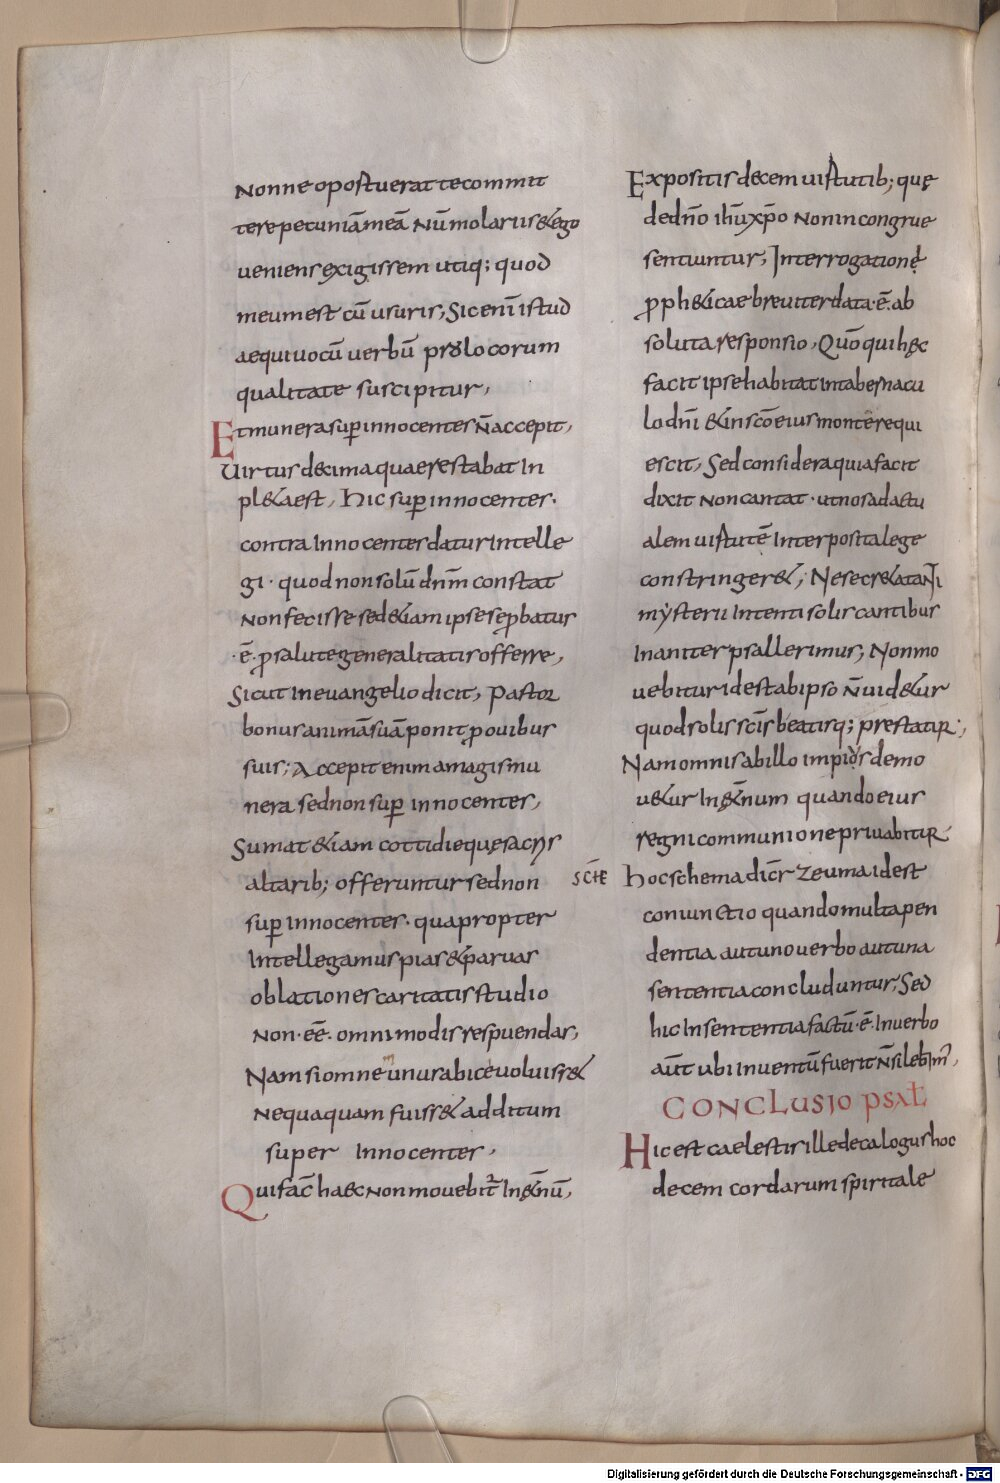 Nonne oportuerat te commit
tere pecuniā meā Nūmolariis & ego
veniens exigissem utiq; quod
meum est cū usuris; Sic enī istud
aequivocū verbū pro locorum
qualitate suscipitur,
Et munera sup innocentes n̄ accepit,
Virtus decima quae restabat in
pl&a est, Hic super innocentes.
contra innocentes datur intelle
gi. quod non solū dn̄m constat
non fecisse sed &iam ipse se ꝓbatus
.ē. ꝓ salute generalitatis offerre,
Sicut in evangelio dicit, Pastor
bonus animā suā ponit ꝓ ovibus
suis; Accepit enim a magis mu
nera sed non sup innocentes,
Sumat &iam cottidie quę sacris
altarib; offeruntur sed non
sup innocentes. quapropter
intellegamus pias & parvas
oblationes caritatis studio
non.eē. omnimodis respuendas,
Nam si omne munus abicę voluiss&
nequaquam fuiss& additum
super innocentes,
Qui fac̄ haec non movebit̄ in &n̄ū,
Expositis decem virtutib; quę
de dn̄o ihū xp̄o non incongrue
sentiuntur; Interrogationę
ꝓph&icae breviter data.ē. ab
soluta responsio, Quō qui hęc
facit ipse habitat in tabernacu
lo dn̄i & in sc̄o eius monte requi
escit, Sed considera quia facit
dixit non cantat. ut nos ad actu
alem virtutē interposita lege
constringer&; Ne secr&a tanti
mysterii intenti solis cantibus
inaniter psallerimus; Non mo
vebitur id est ab ipso n̄ vid&ur
quod solis sc̄is beatisq; prestatur;
Nam omnis ab illo impius demo
v&ur in &n̄num quando eius
regni communione privabitur.
SCHE Hoc schema dicr̄ zeuma id est
coniunctio quando multa pen
dentia aut uno verbo aut una
sententia concluduntur, Sed
hic in sententia factū.ē. In verbo
aūt ubi inventū fuerit n̄ silebim̄,
CONCLUSIO PSAL̄
Hic est caelestis ille decalogus hoc
decem cordarum spiritale
Digitalisierung gefördert durch die Deutsche Forschungsgemeinschaft - DFG